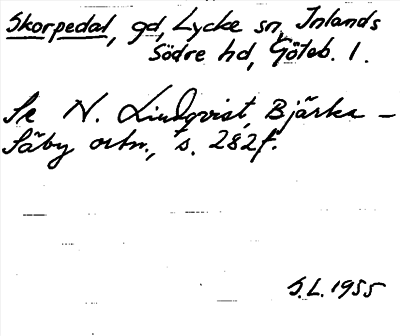 Skorpedal, gd, Lycke sn, Inlands
Södre hd, Göteb. l.
Se N. Lindqvist, Bjärka-
Säby ortn., s. 282f.
S.L. 1955